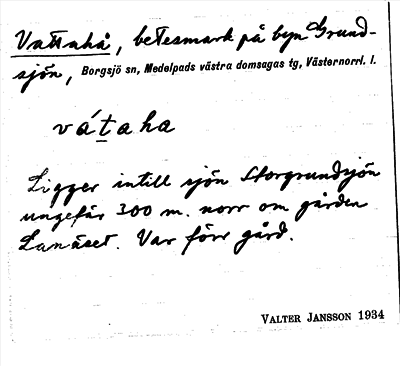 Vattahå, betesmark på byn Grund-
sjön, Borgsjö sn, Medelpads västra domsagas tg, Västernorrl. l.
vátaha
Ligger intill sjön Storgrundsjön
ungefär 300 m. norr om gården
Lanäset. Var förr gård.
VALTER JANSSON 1934